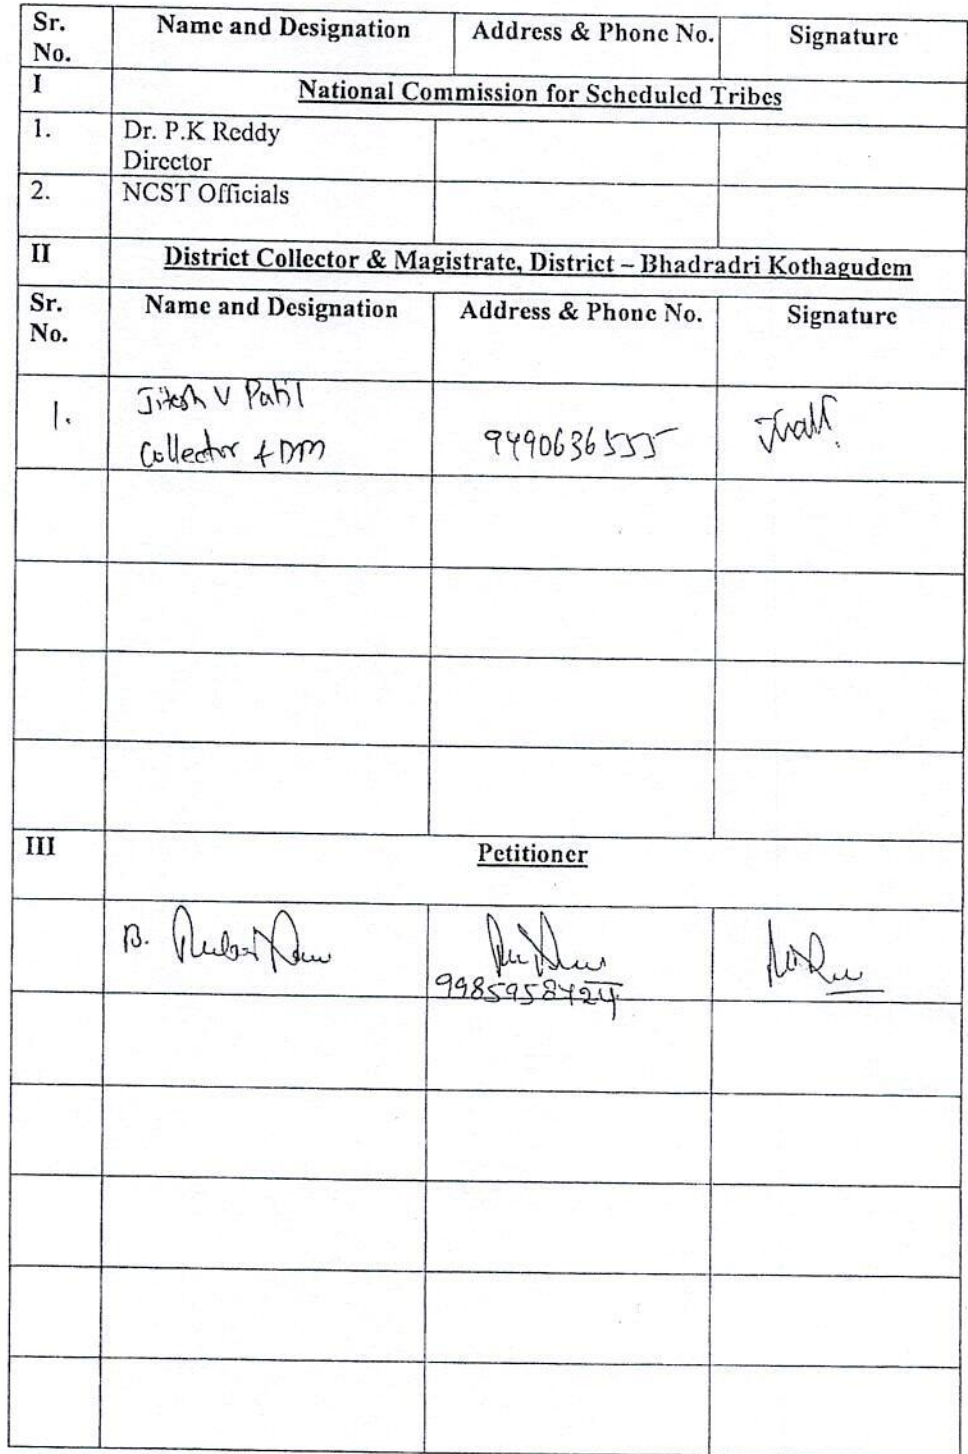 Sr. No. Name and Designation Address & Phone No. Signature
I National Commission for Scheduled Tribes
1. Dr. P.K Reddy
Director
2. NCST Officials
II District Collector & Magistrate, District – Bhadradri Kothagudem
Sr. No. Name and Designation Address & Phone No. Signature
1. Jitesh V Patil
Collector & DM 9490636555
III Petitioner
B.
9985958424